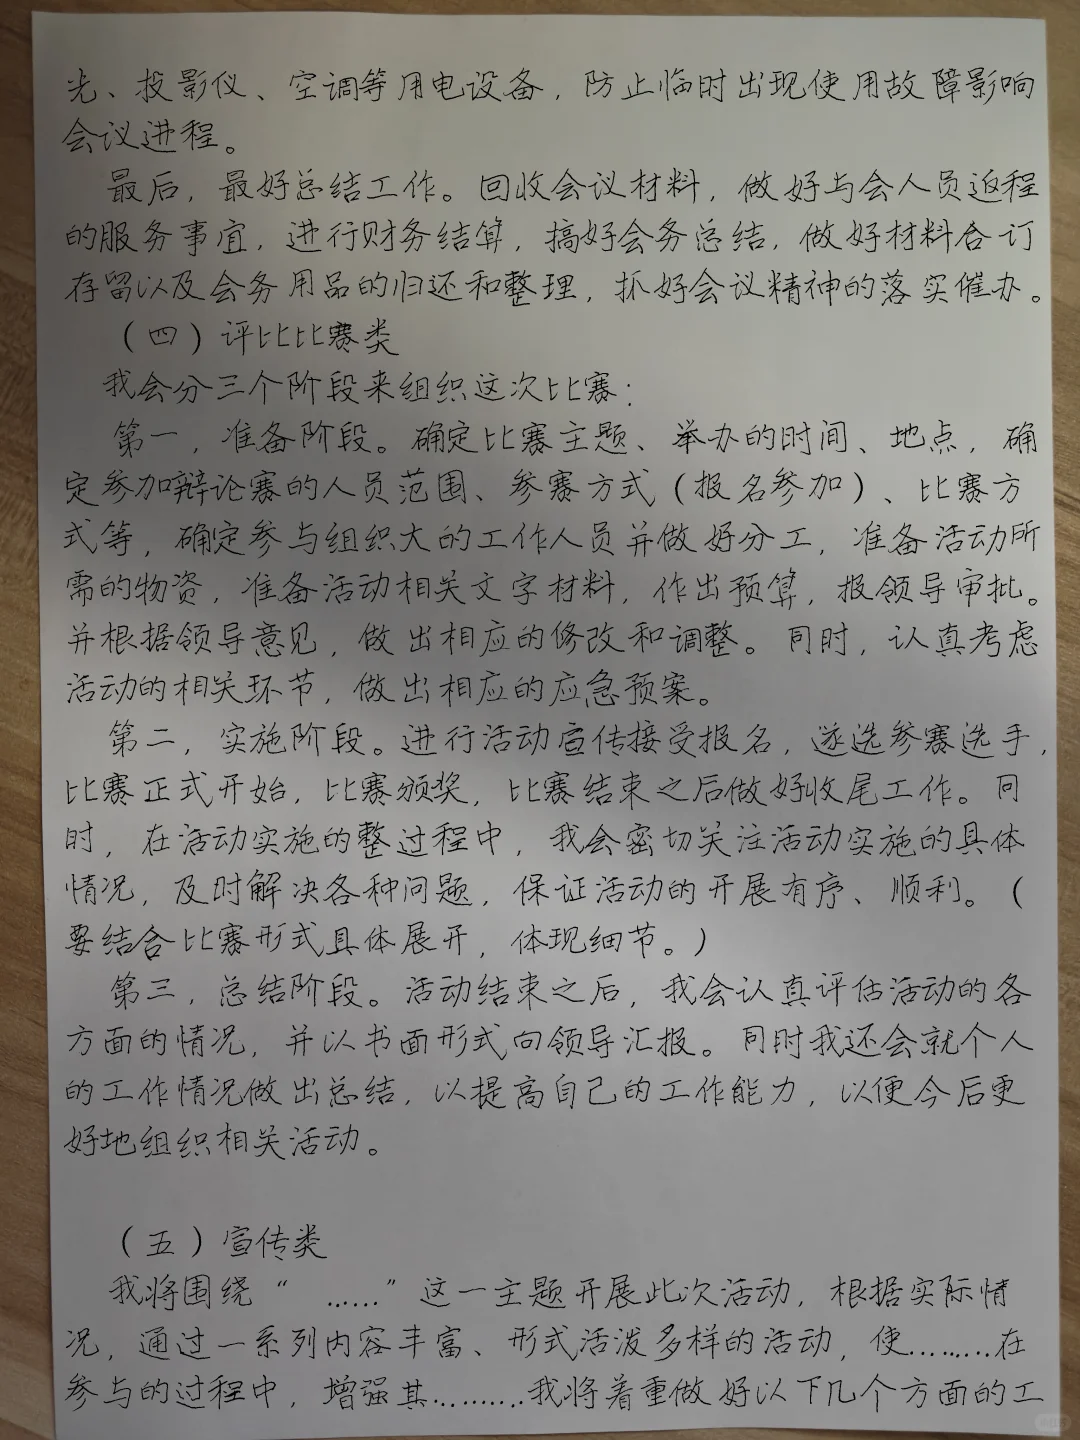 光、投影仪、空调等用电设备，防止临时出现使用故障影响
会议进程。
最后，最好总结工作。回收会议材料，做好与会人员返程
的服务事宜，进行财务结算，搞好会务总结，做好材料合订
存留以及会务用品的归还和整理，抓好会议精神的落实催办。
（四）评比比赛类
我会分三个阶段来组织这次比赛：
第一，准备阶段。确定比赛主题、举办的时间、地点，确
定参加辩论赛的人员范围、参赛方式（报名参加）、比赛方
式等，确定参与组织大的工作人员并做好分工，准备活动所
需的物资，准备活动相关文字材料，作出预算，报领导审批。
并根据领导意见，做出相应的修改和调整。同时，认真考虑
活动的相关环节，做出相应的应急预案。
第二，实施阶段。进行活动宣传接受报名，遴选参赛选手，
比赛正式开始，比赛颁奖，比赛结束之后做好收尾工作。同
时，在活动实施的整过程中，我会密切关注活动实施的具体
情况，及时解决各种问题，保证活动的开展有序、顺利。（
要结合比赛形式具体展开，体现细节。）
第三，总结阶段。活动结束之后，我会认真评估活动的各
方面的情况，并以书面形式向领导汇报。同时我还会就个人
的工作情况做出总结，以提高自己的工作能力，以便今后更
好地组织相关活动。
（五）宣传类
我将围绕“ ……”这一主题开展此次活动，根据实际情
况，通过一系列内容丰富、形式活泼多样的活动，使………在
参与的过程中，增强其…………我将着重做好以下几个方面的工